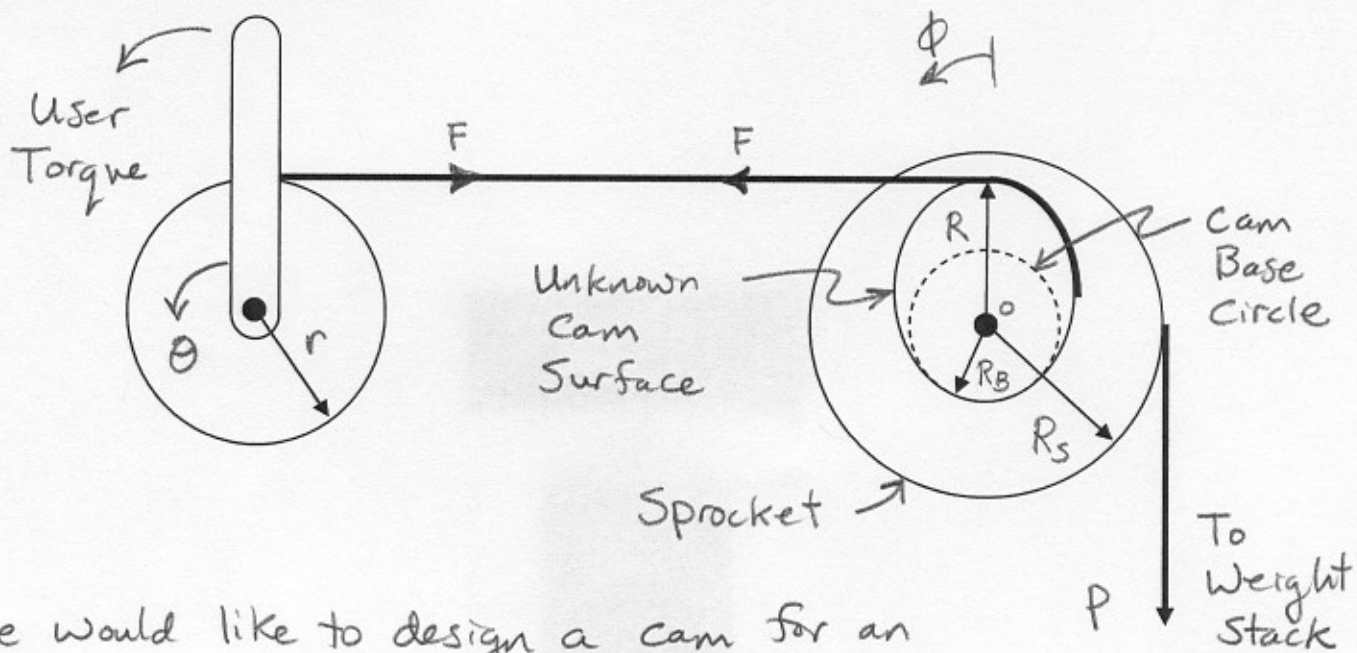 ϕ
User
Torque
F
F
θ
r
Unknown
Cam
Surface
R
o
R_B
R_S
Cam
Base
Circle
Sprocket
P
To
Weight
Stack
e would like to design a cam for an